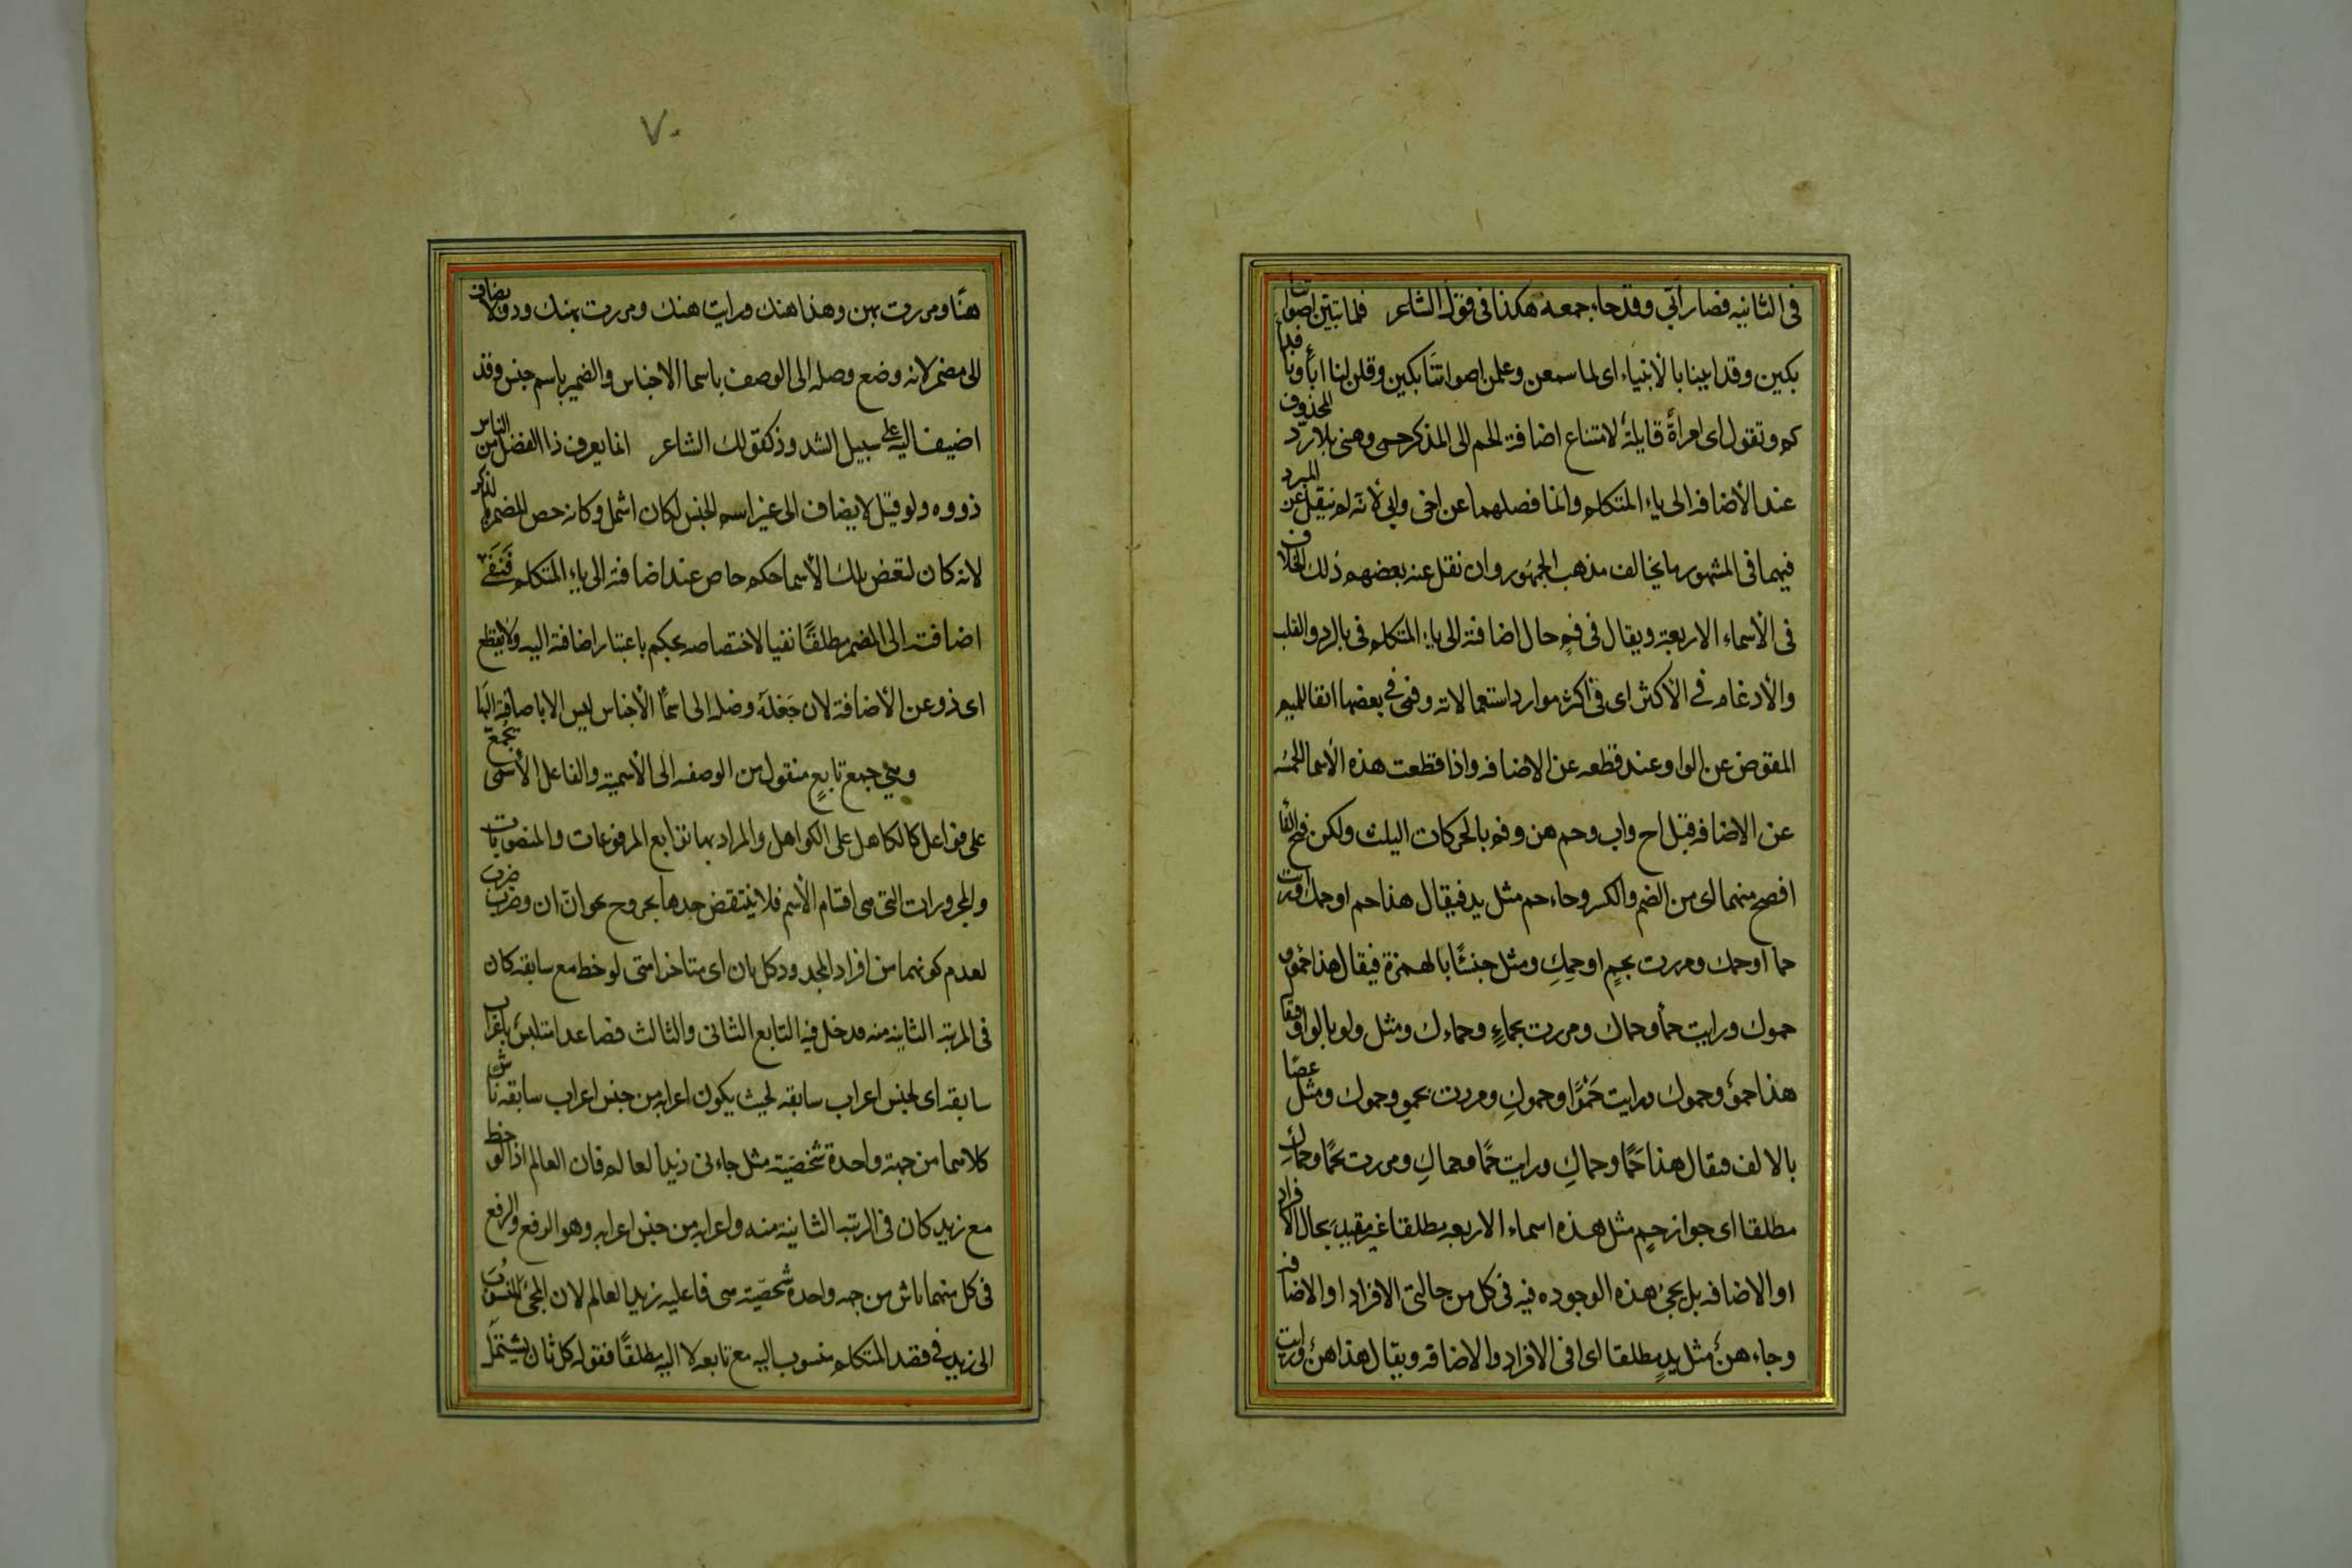 فى الثانيه فصار ابّى وقد جاء جمعه هكذا فى قول الشاعر فلما تبيّن اصواتنا
بكين وقد ايننا بالأبنياء اى لما سمعن وعلمن اصواتنا بكين وقلن لنا اباؤنا فداء
كم وتقول اى امراةً قايلةً لامتناع اضافة الحم الى المذكر حمى وهنى بلا ردّ المحذوف
عند الأضافه الى ياء المتكلم وانما فصلهما عن اخى وابى لأنه لم ينقل عن المبرد
فيهما فى المشهور ما يخالف مذهب الجمهور وان نقل عنه بعضهم ذلك الخلاف
فى الأسماء الاربعة ويقال فى فمٍ حال اضافته الى ياء المتكلم فىّ بالرد والقلب
والأدغام فى الأكثر اى فى اكثر موارد استعمالاته وفمى فى بعضها ابقا للميم
المعوض عن الواو عند قطعه عن الاضافه واذا قطعت هذه الاسما الخمسه
عن الاضافه قيل اخ واب وحم هن وفم بالحركات الثلث ولكن فتح الفأ
افصح منهما اى من الضم والكسر وجاء حم مثل يد فيقال هذا حم او حمك ورايت
حما او حمك ومررت بحمٍ او حمِكِ ومثل خبئًا بالهمزة فيقال هذا حمؤ و
حموك ورايت حمأ وحماك ومررت بحماءٍ وحماءك ومثل ولو بالواو فيقا
هذا حموٌ وحموك ورايت حَمْوًا وحموكِ ومررت بحموٍ وحموك ومثل عصًا
بالالف فيقال هذا حَمًا وحماكِ ورايت حَمًا وحماكِ ومررت بحَمًا وحماكِ
مطلقا اى جواز حمٍ مثل هذه اسماء الاربعه مطلقا غير مقيد بحال الأفراد
او الاضافه بل يجئ هذه الوجوده فيه فى كل من حالتى الافراد او الاضافه
وجاء هنٌ مثل يدٍ مطلقا اى فى الافراد والاضافه ويقال هذا هنٌ ورايت
٧٠
هنًا ومررت بهن وهذا هنك ورايت هنك ومررت بهنك وذو لا يضاف
الى مضمر لانه وضع وصله الى الوصف باسما الاجناس والضمير باسم جنس وقد
اضيف اليه على سبيل الشدوذ كقولك الشاعر انما يعرف ذا الفضل من الناس
ذووه ولو قيل لا يضاف الى غير اسم الجنس لكان اشمل وكانه خص المضمر بالذكر
لانه كان لبعض تلك الأسما حكم خاص عند اضافته الى ياء المتكلم فنفى
اضافته الى المضمر مطلقًا نفيا لاختصاصه بحكم باعتبار اضافته اليه ولا يقطع
اى ذو عن الأضافة لان جَعْلَهُ وصله الى اسمأ الأجناس ليس الا باضافته اليها
وهى جمع تابعٍ منقول من الوصفه الى الأسمية والفاعل الأسمى يجمع
على فواعل كالكاهل على الكواهل والمراد بها توابع المرفوعات والمنصوبات
والمجرورات التى هى اقسام الأسم فلا ينتقض حدها بخروج نحو انّ ان وضرب ضرب
لعدم كونهما من افراد المحدود كل ثان اى متاخر متى لوخط مع سابقه كان
فى المرتبه الثانيه منه فدخل فيه التابع الثانى والثالث فصاعدا متلبس باعراب
سابقه اى بجنس اعراب سابقه بحيث يكون اعرابه من جنس اعراب سابقه ناش
كلاهما من جهة واحدة شخصيّة مثل جاءنى زيد العالم فان العالم اذا لوخط
مع زيد كان فى الرتبه الثانية منه واعرابه من جنس اعرابه وهو الرفع والرفع
فى كل منهما ناش من جهه واحدة شخصيّة هى فاعليه زيد العالم لان المجئ المنسوب
الى زيد فى قصد المتكلم منسوب اليه مع تابعه لا اليه مطلقًا فقوله كل ثان يشتمل